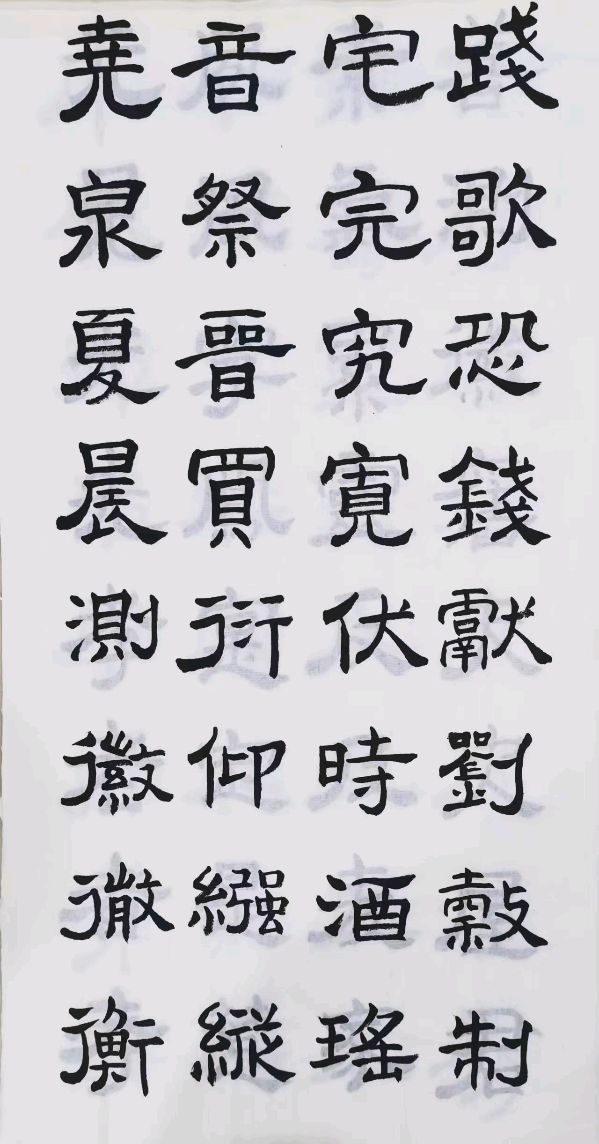 踐歌恐錢獻劉穀制
宅完究寬伏時酒瑤
音祭晉買衍仰繦縱
堯泉夏晨測徽徹衡